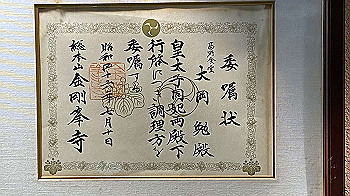 委嘱状
大岡 勉殿
皇太子同妃両殿下
行啓につき調理方を
委嘱する
昭和四十六年七月十日
総本山金剛峯寺